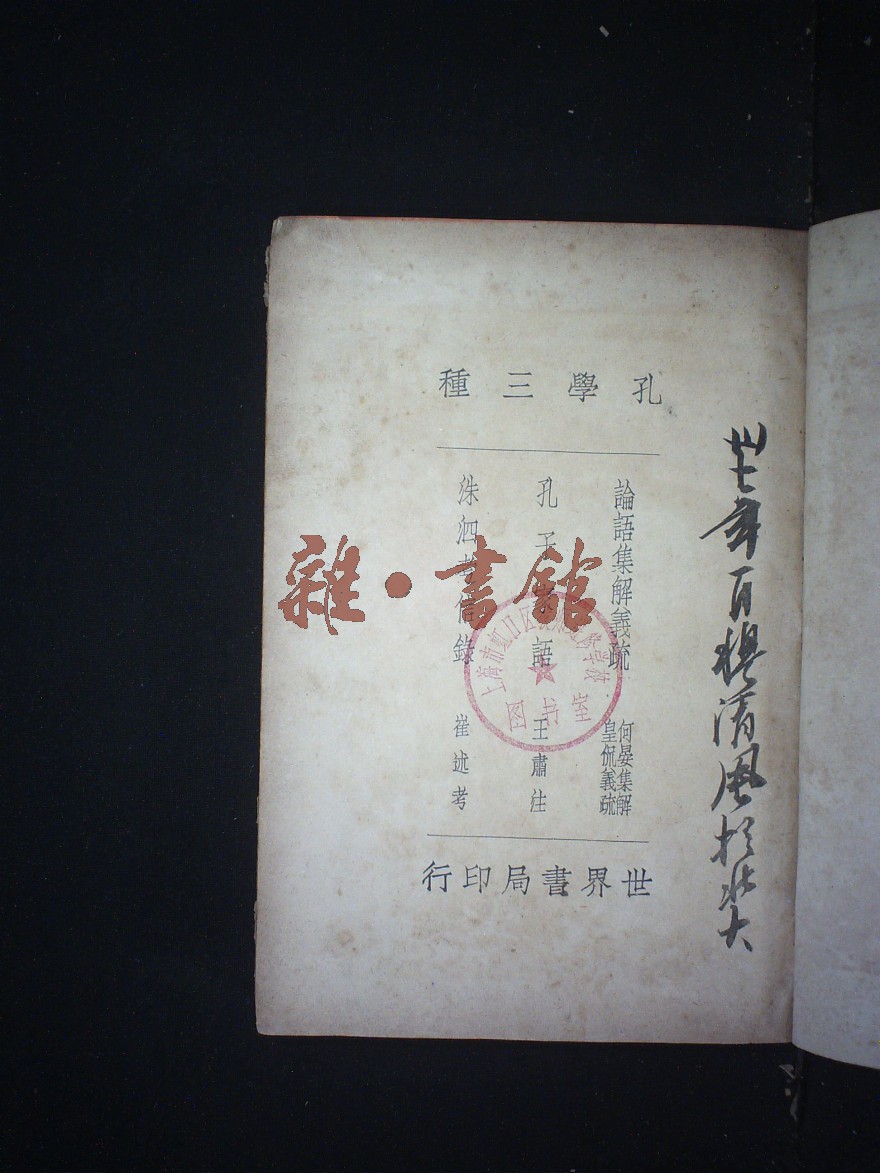 孔學三種
論語集解義疏 何晏集解 皇侃義疏
孔子家語 王肅注
洙泗考信錄 崔述考
世界書局印行
雜·書館
上海市虹口区
图书室
清風於北大